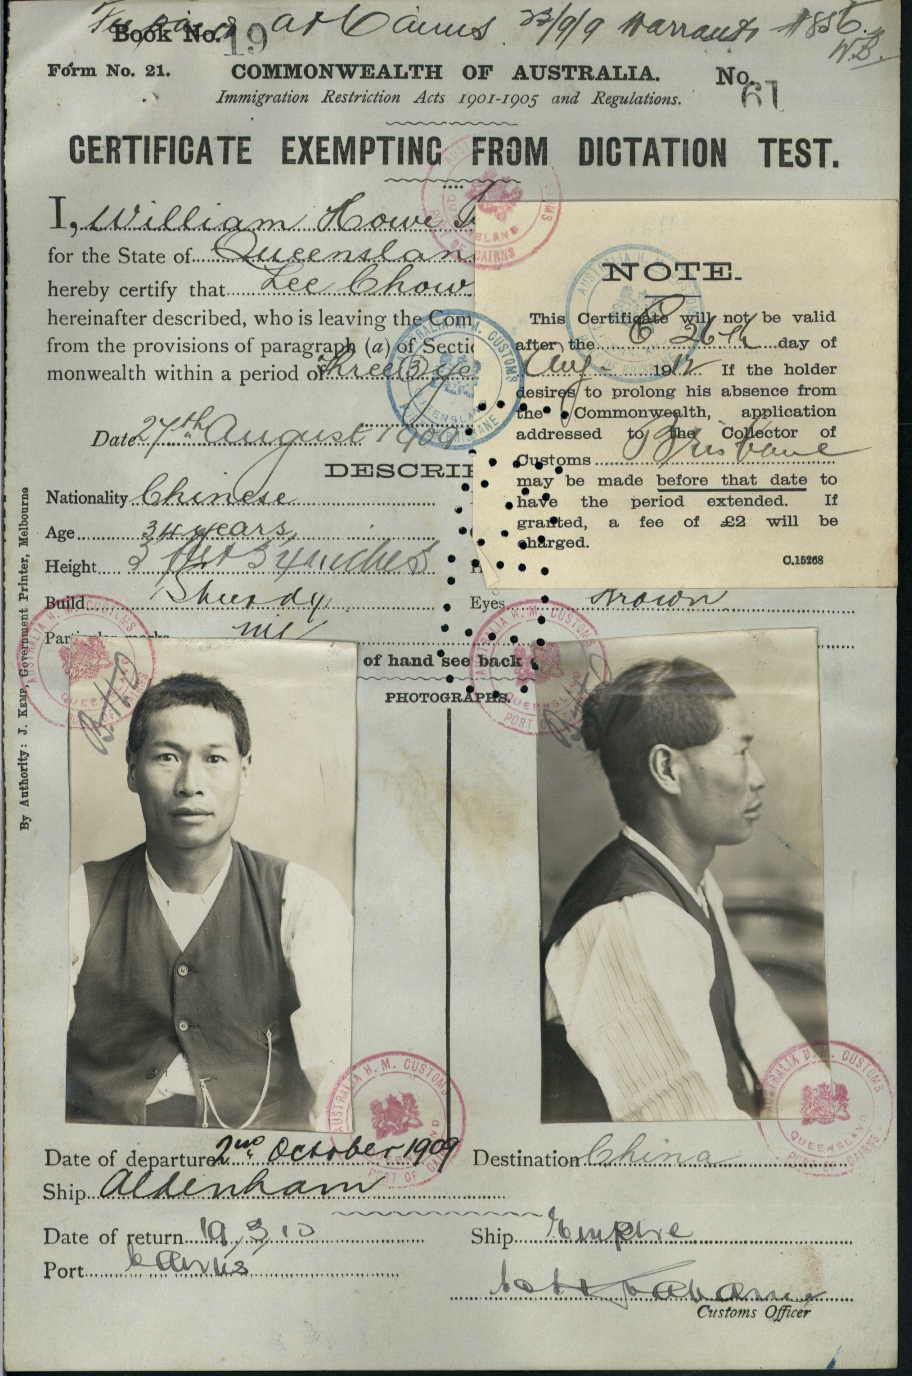 at Cairns 23/9/9 Warrants 856
W.B.
Book No. 19
Form No. 21.
COMMONWEALTH OF AUSTRALIA.
No. 61
Immigration Restriction Acts 1901-1905 and Regulations.
CERTIFICATE EXEMPTING FROM DICTATION TEST.
I, William Howe
for the State of Queenslan
hereby certify that Lee Chow
hereinafter described, who is leaving the Com
from the provisions of paragraph (a) of Secti
monwealth within a period of Three (3) ye
Date 27th August 1909
DESCRIP
Nationality Chinese
Age 34 years
Height
Build Sturdy
Particular marks nil
Eyes Brown
of hand see back
PHOTOGRAPHS.
NOTE.
This Certificate will not be valid
after the 26th day of
Aug 1912. If the holder
desires to prolong his absence from
the Commonwealth, application
addressed to the Collector of
Customs Brisbane
may be made before that date to
have the period extended. If
granted, a fee of £2 will be
charged.
C.15268
By Authority: J. KEMP, Government Printer, Melbourne
Date of departure 2nd October 1909
Destination China
Ship Aldenham
Date of return 19.3.10
Ship Empire
Port Cairns
Customs Officer